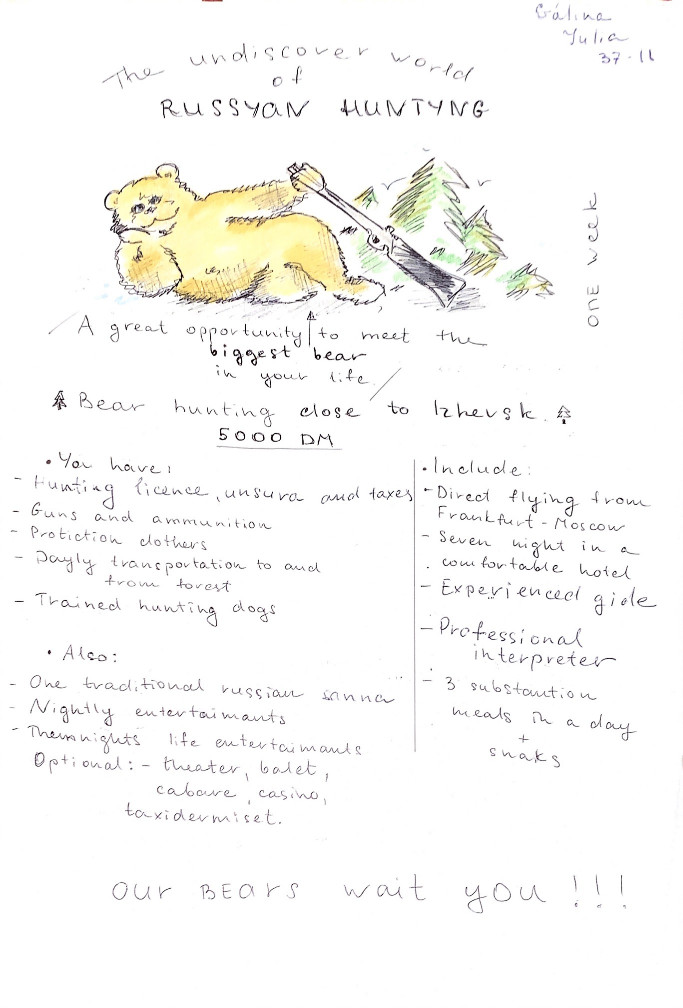 Galina
Yulia
37-11
The undiscover world
of
RUSSYAN HUNTYNG
ONE week
A great opportunity to meet the
biggest bear
in your life
Bear hunting close to Izhevsk.
5000 DM
• You have:
- Hunting licence, unsura and taxes
- Guns and ammunition
- Protiction clothers
- Dayly transportation to and
from forest
- Trained hunting dogs
• Also:
- One traditional russian
- Nightly entertaimants
- nights life entertaimants
Optional: - theater, balet,
cabare, casino,
taxidermiset.
• Include:
- Direct flying from
Frankfurt - Moscow
- Seven night in a
comfortable hotel
- Experienced gide
- Professional
interpreter
- 3 substantion
meals in a day
+
snaks
OUR BEARS wait you !!!